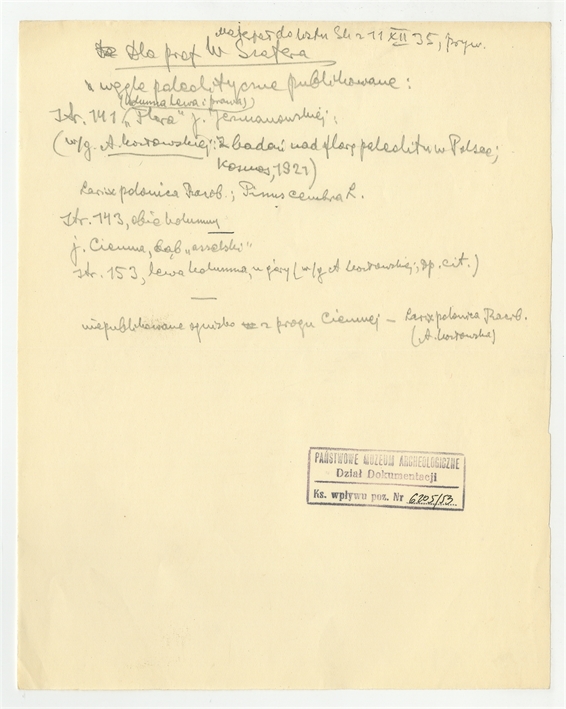 do listu Sk z 11 XII 35, pryw.
Dla prof W Szafera
węgle paleolityczne publikowane:
(kolumna lewa i prawa)
Str. 141 „Flora” j. Jermanowskiej;
(w/g. A. Kozłowskiej: Z badań nad florą paleolitu w Polsce;
Kosmos, 1921)
Larix polonica Racib.; Pinus cembra L.
Str. 143, obie kolumny
j. Ciemna, dąb
Str. 153, lewa kolumna, u góry (w/g A Kozłowskiej, op. cit.)
niepublikowane ognisko z progu Ciemnej – Larix polonica Racib.
(A. Kozłowska)
PAŃSTWOWE MUZEUM ARCHEOLOGICZNE
Dział Dokumentacji
Ks. wpływu poz. Nr 6205/53